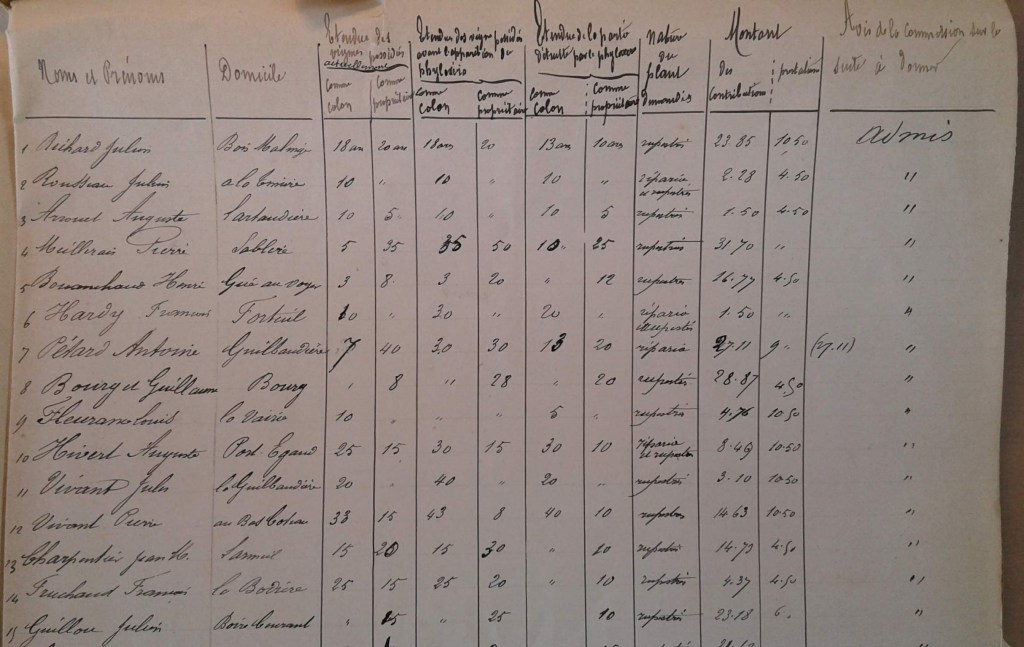 Noms et Prénoms Domicile Etendue des vignes possédés actuellement Etendue des vignes possédés avant l'apparition du phyloxéra Etendue de la partie détruite par le phyloxera Nature du plant demandés Montant Avis de la Commission sur la suite à donner
comme colon comme propriétaire comme colon comme propriétaire comme colon comme propriétaire des contribution prestation
1 Richard Julien 18 ares 20 ares 18 ares 20 13 ares 10 ares rupestris 23.85 10.50 admis
2 Rousseau Julien 10 " 10 " 10 " riparia et rupestris 2.28 4.50 "
3 Auguste 10 5 " 10 " 10 5 rupestris 1.50 4.50 "
4 Pierre Sablère 5 35 35 50 10 " 25 rupestris 31.70 " "
5 Henri Gué au Voyer 3 8 3 20 " 12 rupestris 16.77 4.50 "
6 Hardy Francois 10 " 30 " 20 " riparia et rupestris 1.50 " "
7 Pétard Antoine Guilbaudière 7 40 30 30 13 20 riparia 27.11 9 " (27.11) "
8 Bourget Guillaume Bourg " 8 " 28 " 20 rupestris 28.87 4.50 "
9 Fleurance Louis la Vairie 10 " " " 5 " rupestris 4.76 10.50 "
10 Hivert Auguste Port Egaud 25 15 30 15 30 10 riparia et rupestris 8.49 10.50 "
11 Vivant Jules la Guilbaudière 20 " 40 " 20 " rupestris 3.10 10.50 "
12 Vivant Pierre au Bas Coteau 33 15 43 8 40 10 rupestris 14.63 10.50 "
13 Charpentier jean M. 15 20 15 30 " 10 rupestris 14.73 4.50 "
14 Fruchaud Francois 25 15 25 20 " 10 rupestris 4.37 4.50 "
15 Guillou Julien Boire Courant " 15 " 25 10 rupestris 23.18 6 " "